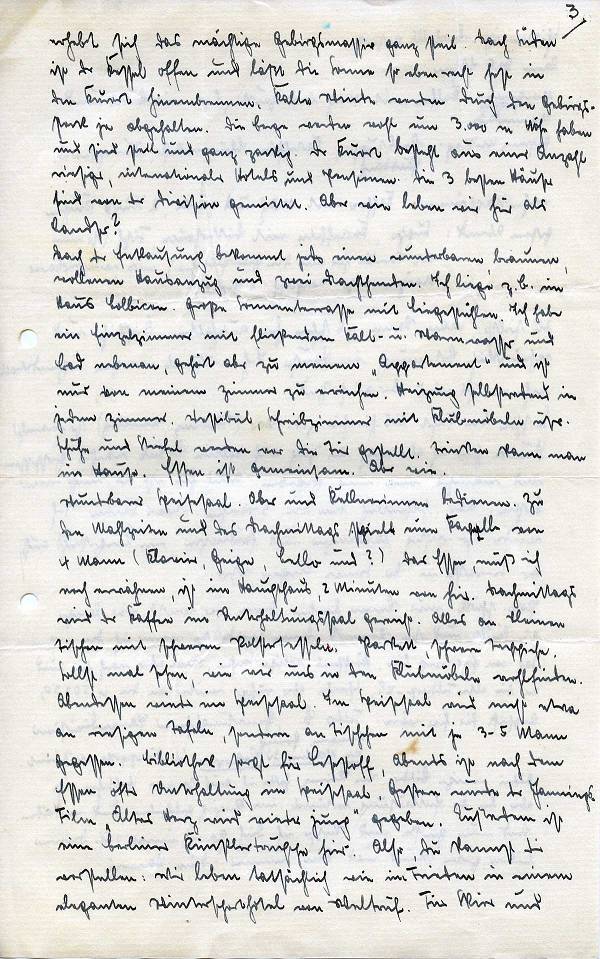 3
erhebt sich das mächtige Gebirgsmassiv ganz steil. Nach Süden
ist der Kessel offen und läßt die Sonne so eben recht fest in
den Kurort hineinbrennen. Kalte Winde werden durch den Gebirgs-
stock ja abgehalten. Die Berge werden wohl um 3.000 m Höhe haben
und sind steil und ganz zackig. Der Kurort besteht aus einer Anzahl
riesiger, internationaler Hotels und Pensionen. Die 3 besten Häuser
sind von der Division gemietet. Aber wie leben wir hier als
Landser?
Nach der Entlausung bekommt jeder einen wunderbaren braunen,
wollenen Hausanzug und zwei Wachhunden. Ich liege z.B. im
Haus Große Sonnenterrasse mit Liegestühlen. Ich habe
ein Einzelzimmer mit fließendem Kalt- u. Warmwasser und
Bad nebenan, gehört aber zu meinem „Appartement" und ist
nur von meinem Zimmer zu erreichen. Heizung selbstredend in
jedem Zimmer. Vestibül, Schreibzimmer mit Klubmöbeln usw.
Schuhe und Stiefel werden vor die Tür gestellt. Trinken kann man
im Hause. Essen ist gemeinsam. Aber wie.
Wunderbarer Speisesaal. Ober und Kellnerinnen bedienen. Zu
den Mahlzeiten und des Nachmittags spielt eine Kapelle von
4 Mann (Klavier, Geige, Cello und?) Das Essen, muß ich
noch erwähnen, ist im Haupthaus, 2 Minuten von hier. Nachmittags
wird der Kaffee im Unterhaltungssaal gereicht. Alles an kleinen
Tischen mit schweren Polstersesseln. Parkett, schwere Teppiche.
Sollst mal sehen, wie wir uns in den Klubmöbeln wohlfinden.
Abendessen wieder im Speisesaal. Im Speisesaal wird nicht etwa
an riesigen Tafeln, sondern an Tischchen mit je 3-5 Mann
gegessen. Bibliothek sorgt für Lesestoff, abends ist nach dem
Essen öfter Unterhaltung im Speisesaal. Gestern wurde der Jannings-
Film „Altes Herz wird wieder jung" gegeben. Außerdem ist
eine Berliner Künstlertruppe hier. Also, du kannst dir
vorstellen: Wir leben tatsächlich wie im Frieden in einem
eleganten Wintersporthotel von Weltruf. Für Skier und